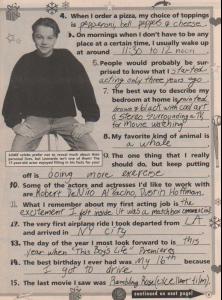 4. When I order a pizza, my choice of toppings
is pepperoni, bell peppers & cheese.
5. On mornings when I don't have to be any
place at a certain time, I usually wake up
at around 11:30 to 12 noon.
6. People would probably be sur-
prised to know that I started
acting only three years ago
7. The best way to describe my
bedroom at home is
black with cool art
& stereo surrounding a TV
for movie watching
8. My favorite kind of animal is
a whale
9. The one thing that I really
should do, but keep putting
off is doing more exercise
10. Some of the actors and actresses I'd like to work with
are Robert DeNiro Al Pacino, Dustin Hoffman
11. What I remember about my first acting job is the
excitement I felt. It was a matchbox commercial
12. The very first airplane ride I took departed from LA
and arrived in NY City
13. The day of the year I most look forward to is this
year when "This Boy's Life" Premiere
14. The best birthday I ever had was my 16th because
I got to drive
15. The last movie I saw was Rambling Rose (excellent film)
continued on next page!